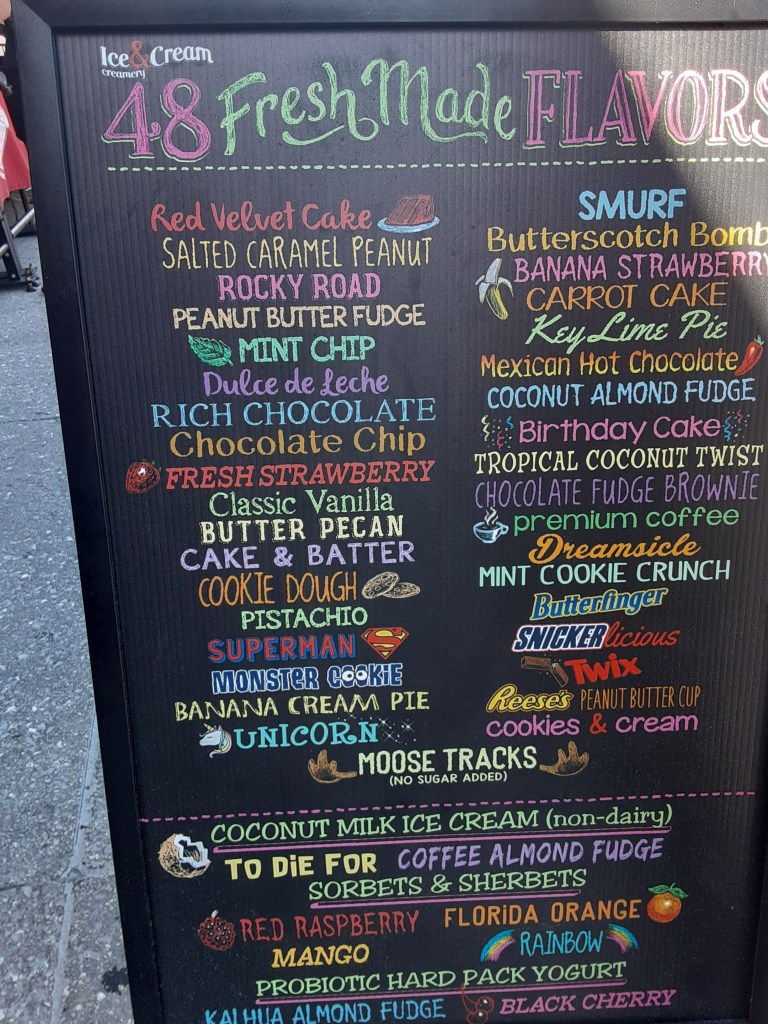 Ice&Cream
creamery
48 Fresh Made FLAVORS
Red Velvet Cake
SALTED CARAMEL PEANUT
ROCKY ROAD
PEANUT BUTTER FUDGE
MINT CHIP
Dulce de Leche
RICH CHOCOLATE
Chocolate Chip
FRESH STRAWBERRY
Classic Vanilla
BUTTER PECAN
CAKE & BATTER
COOKIE DOUGH
PISTACHIO
SUPERMAN
MONSTER COOKIE
BANANA CREAM PIE
UNICORN
SMURF
Butterscotch Bomb
BANANA STRAWBERRY
CARROT CAKE
Key Lime Pie
Mexican Hot Chocolate
COCONUT ALMOND FUDGE
Birthday Cake
TROPICAL COCONUT TWIST
CHOCOLATE FUDGE BROWNIE
premium coffee
Dreamsicle
MINT COOKIE CRUNCH
Butterfinger
SNICKERlicious
Twix
Reese's PEANUT BUTTER CUP
cookies & cream
MOOSE TRACKS
(NO SUGAR ADDED)
COCONUT MILK ICE CREAM (non-dairy)
TO DIE FOR COFFEE ALMOND FUDGE
SORBETS & SHERBETS
RED RASPBERRY FLORIDA ORANGE
MANGO RAINBOW
PROBIOTIC HARD PACK YOGURT
KALHUA ALMOND FUDGE BLACK CHERRY